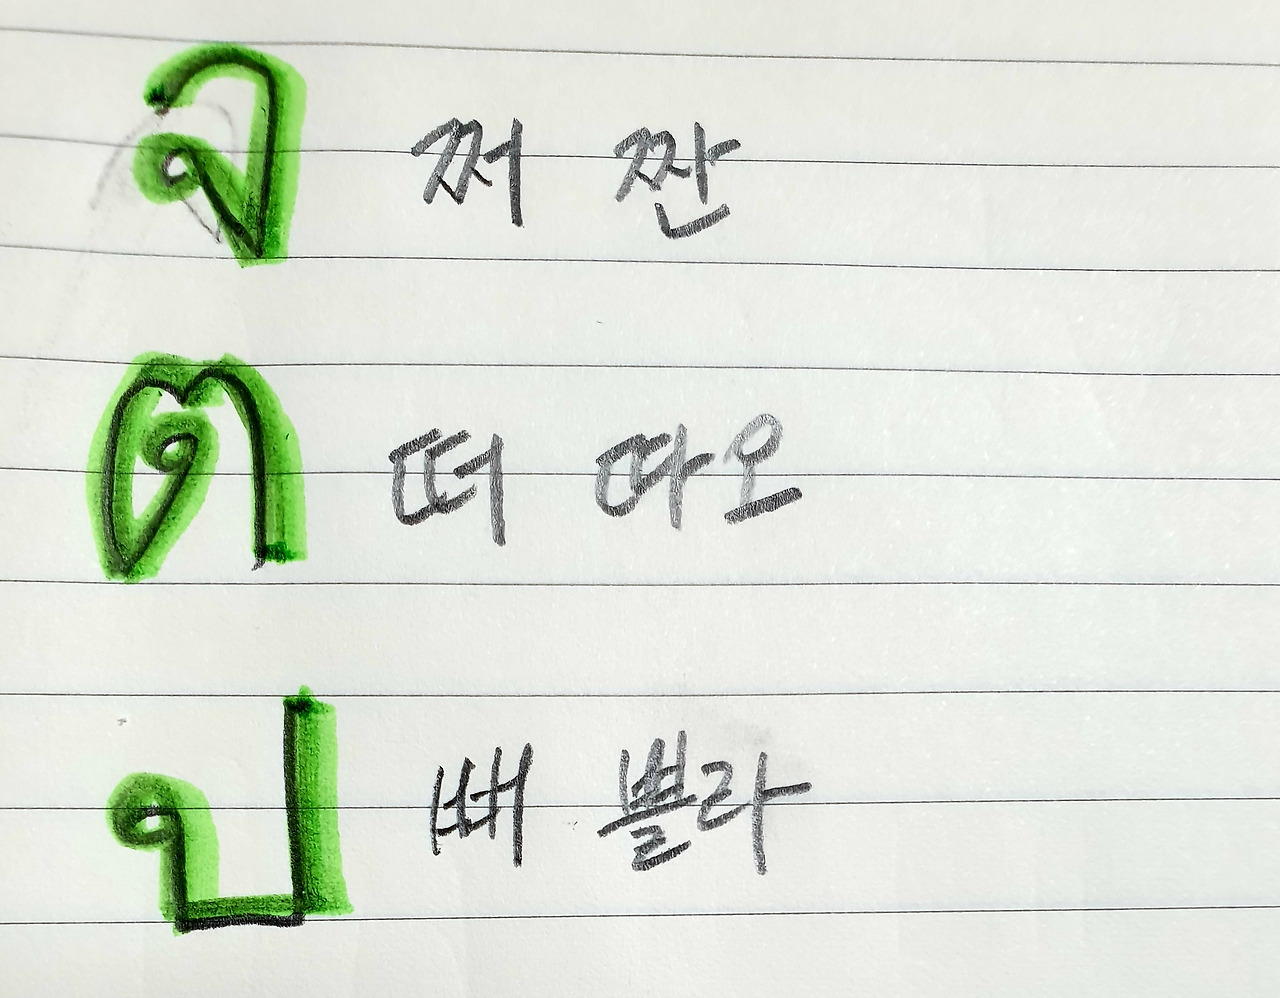 จ 쩌 짠
ต 떠 따오
ป 뻐 쁠라